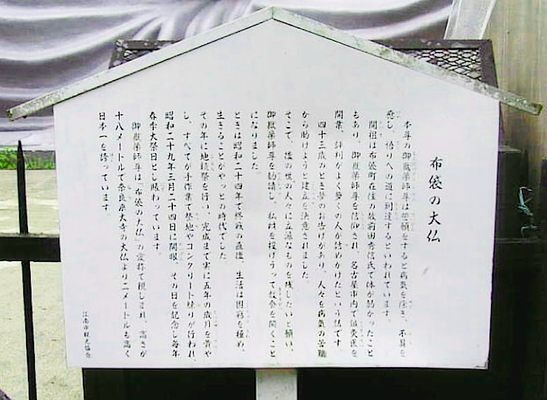 布袋の大仏
本尊の御嶽薬師尊は祈願をすると病気を除き、不具を
癒し、悟りへの道に到達するといわれています。
開祖は布袋町在住の故前田秀信氏で体が弱かったこと
もあり、御嶽薬師尊を信仰され、名古屋市内で鍼灸医を
開業、評判がよく多くの人が詰めかけたという話です
四十三歳のとき夢のお告げがあり、人々を病気の苦難
から助けようと建立を決意されました。
そこで、後の世の人々に立派なものを残したいと願い、
御嶽薬師尊を勧請し、私財を投げうって教会を開くこと
になりました。
ときは昭和二十四年で終戦の直後、生活は困窮を極め、
生きることがやっとの時代でした
その年に地鎮祭を行い、完成まで実に五年の歳月を費や
し、すべてが手作業で整地やコンクリート練りが行われ、
昭和二十九年三月二十四日に開眼、その日を記念し毎年
春季大祭日として賑わっています。
御嶽薬師尊は、「布袋の大仏」の愛称で親しまれ、高さが
十八メートルで奈良東大寺の大仏より二メートルも高く
日本一を誇っています。
江南市観光協会